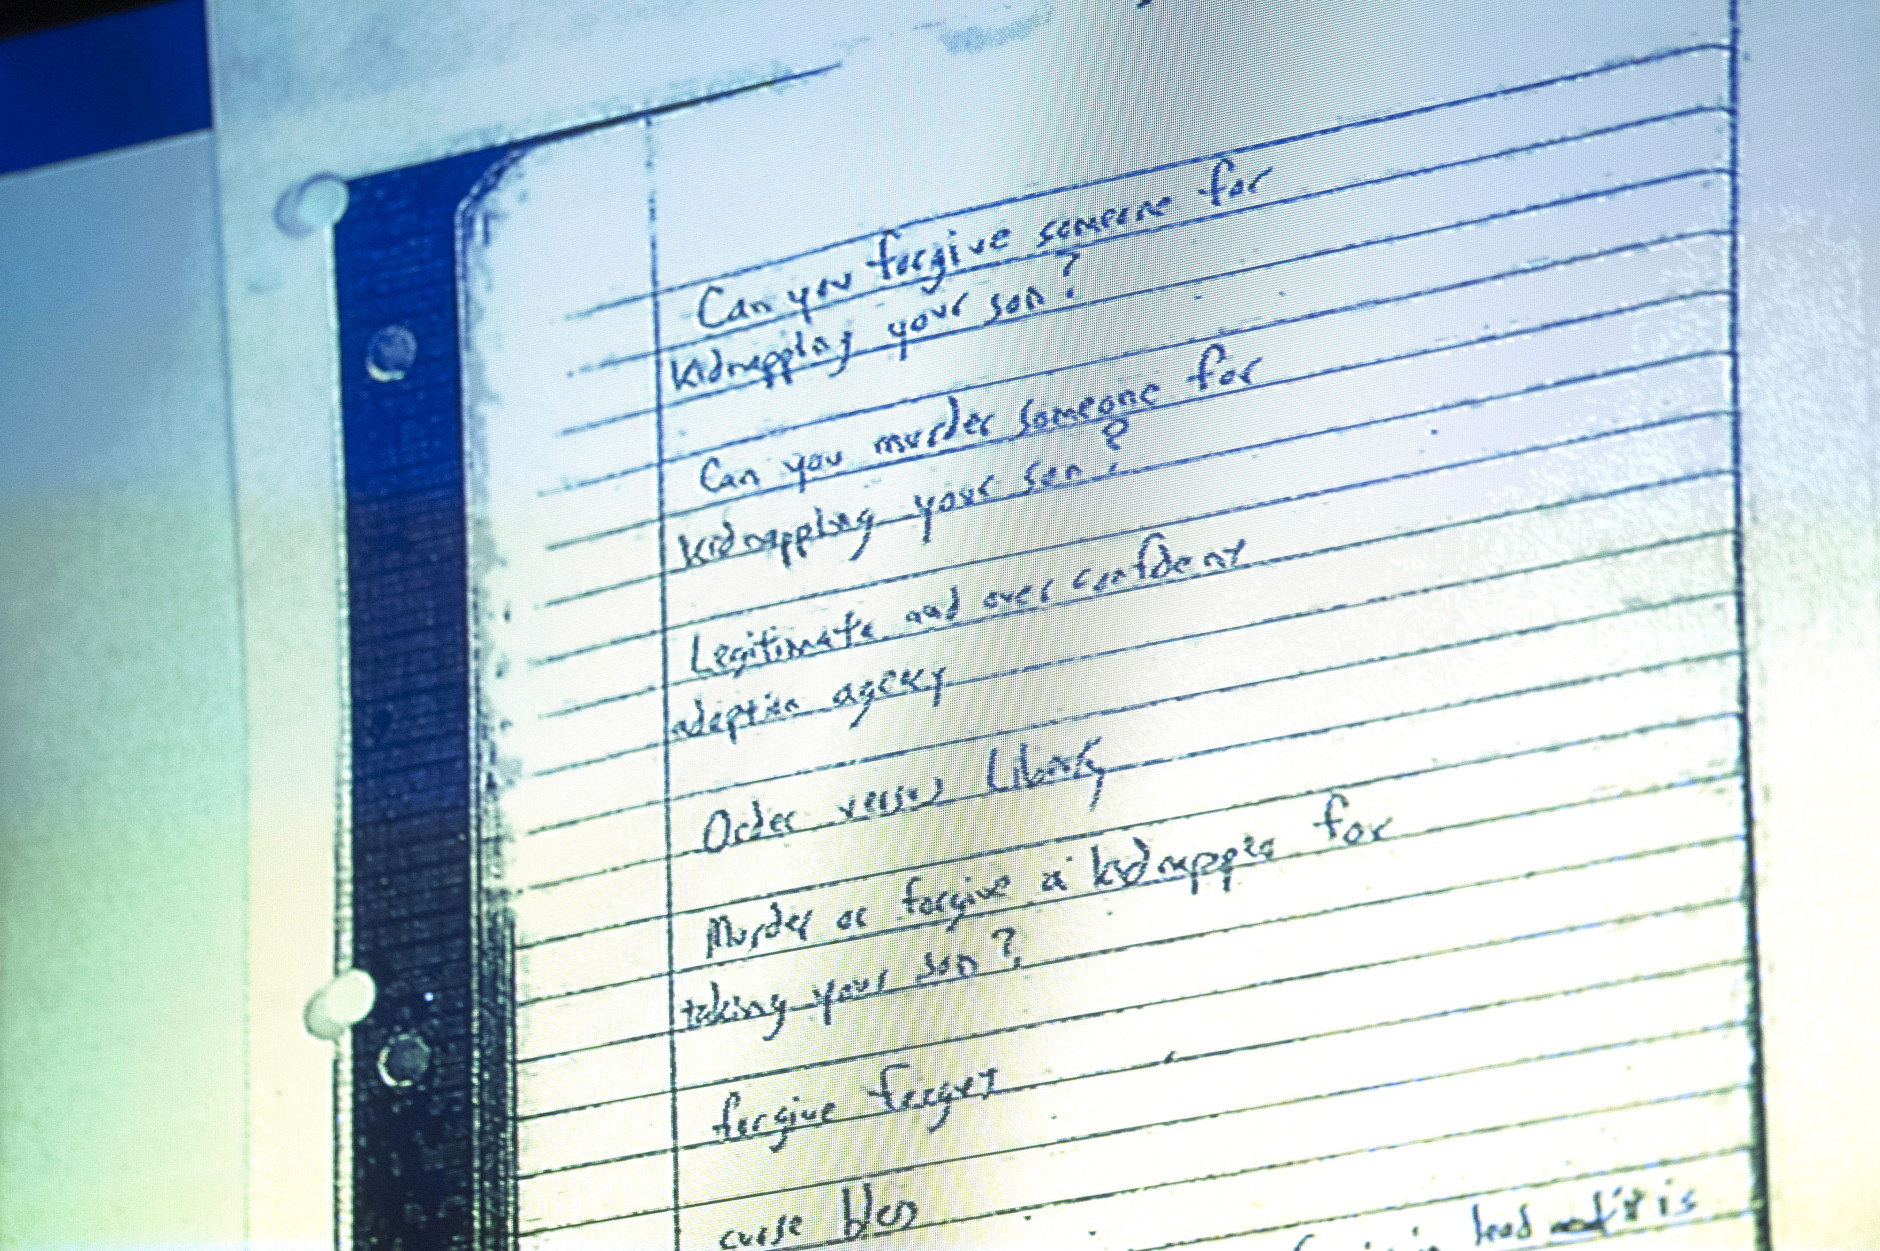 Can you forgive someone for
kidnapping your son?
Can you murder someone for
kidnapping your son?
Legitimate and over confident
adoption agency
Order verses Liberty
Murder or forgive a kidnapper for
taking your son?
forgive forget
curse bless
head and it is